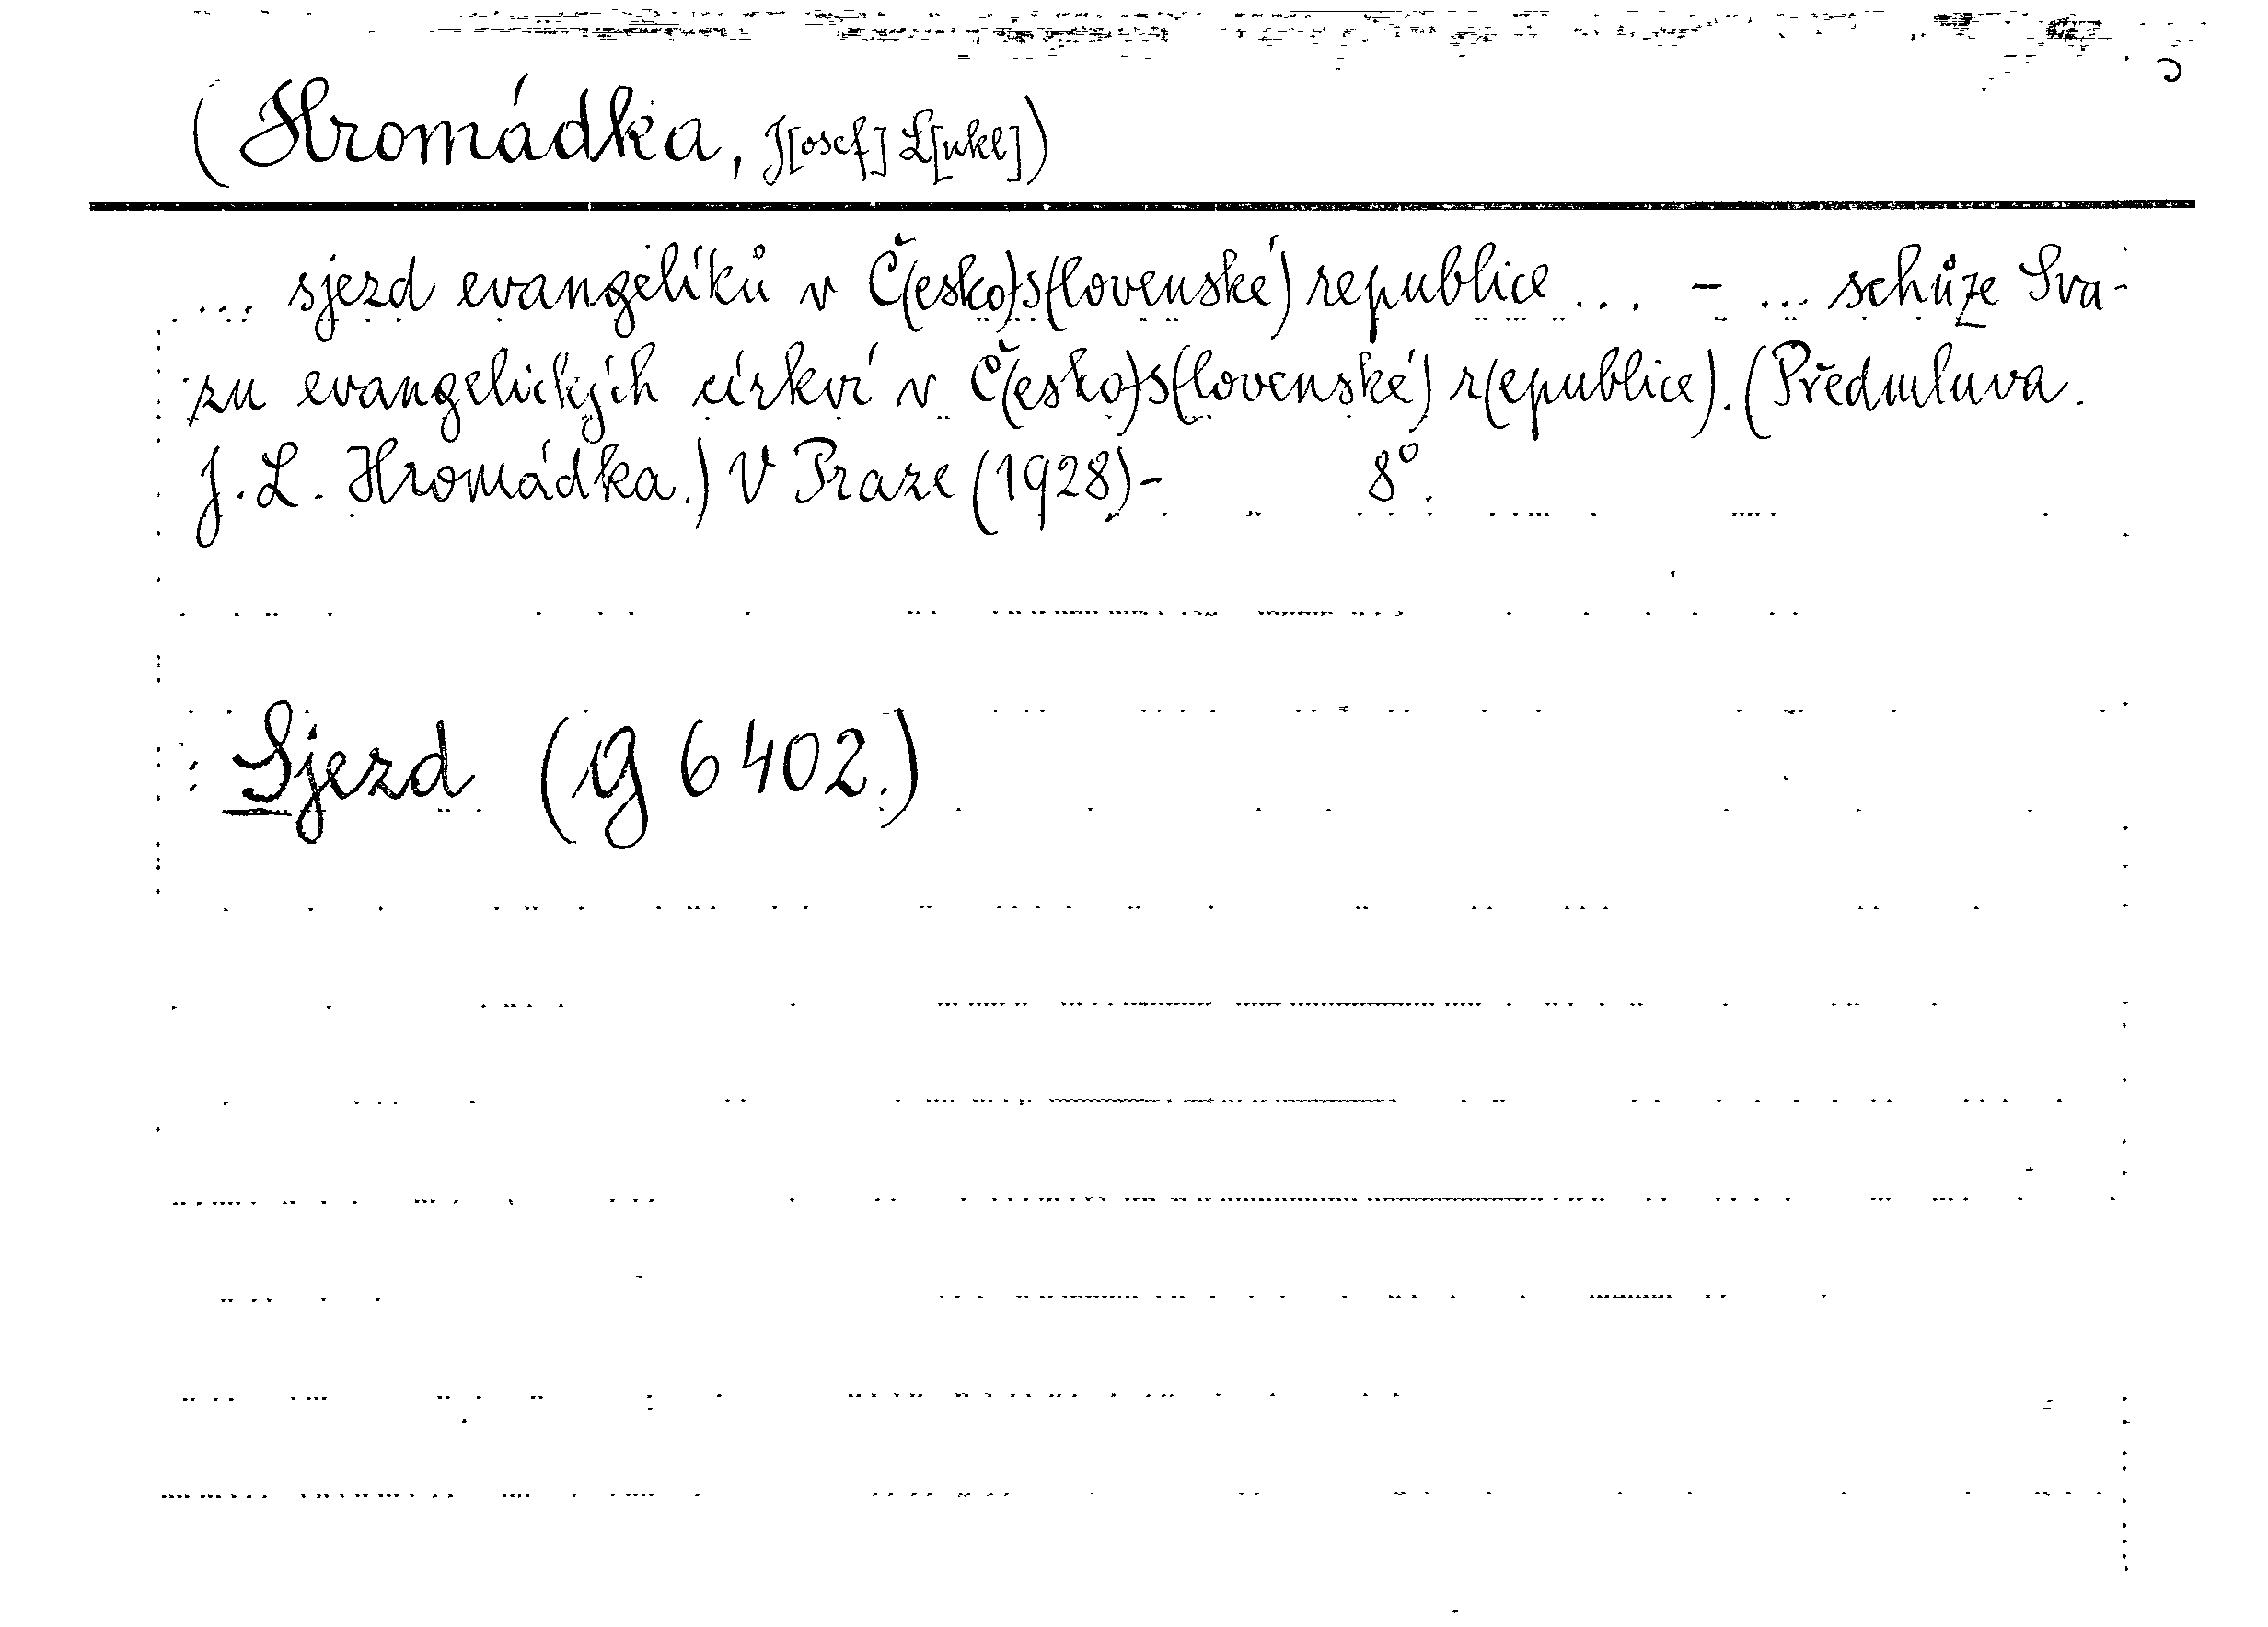 (Hromádka, J[osef] L[ukl])
... sjezd evangelíků v Č(esko)s(lovenské) republice ... - ... schůze Sva-
zu evangelických církví v Č(esko)s(lovenské) r(epublice). (Předmluva.
J. L. Hromádka.) V Praze (1928)- 8°.
Sjezd (G 6402.)